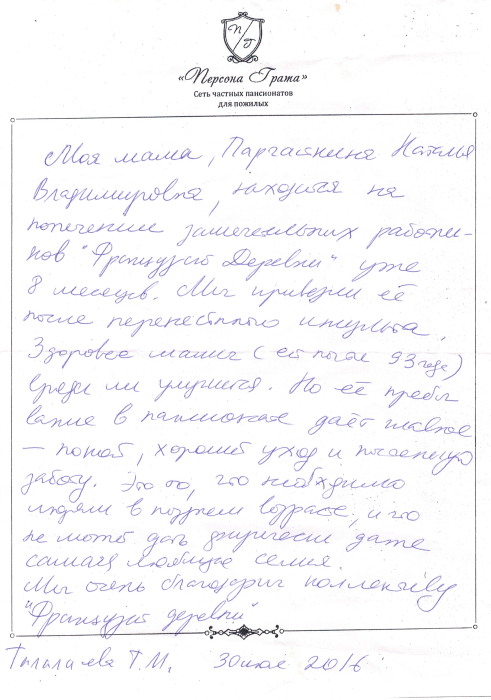 П/Г
«Персона Грата»
Сеть частных пансионатов
для пожилых
Моя мама, Наталья
Владимировна, находится на
попечении замечательных работни-
ков "Французской Деревни" уже
8 месяцев. Мы привезли её
после перенесённого инсульта.
Здоровье мамы (ей почти 93 года)
вряд ли улучшится. Но её пребы
вание в пансионате даёт главное
— покой, хороший уход и постоянную
заботу. Это то, что необходимо
людям в позднем возрасте, и что
не может дать физически даже
самая любящая семья.
Мы очень благодарим коллективу
"Французской деревни"
Т.М. 30 июля 2016